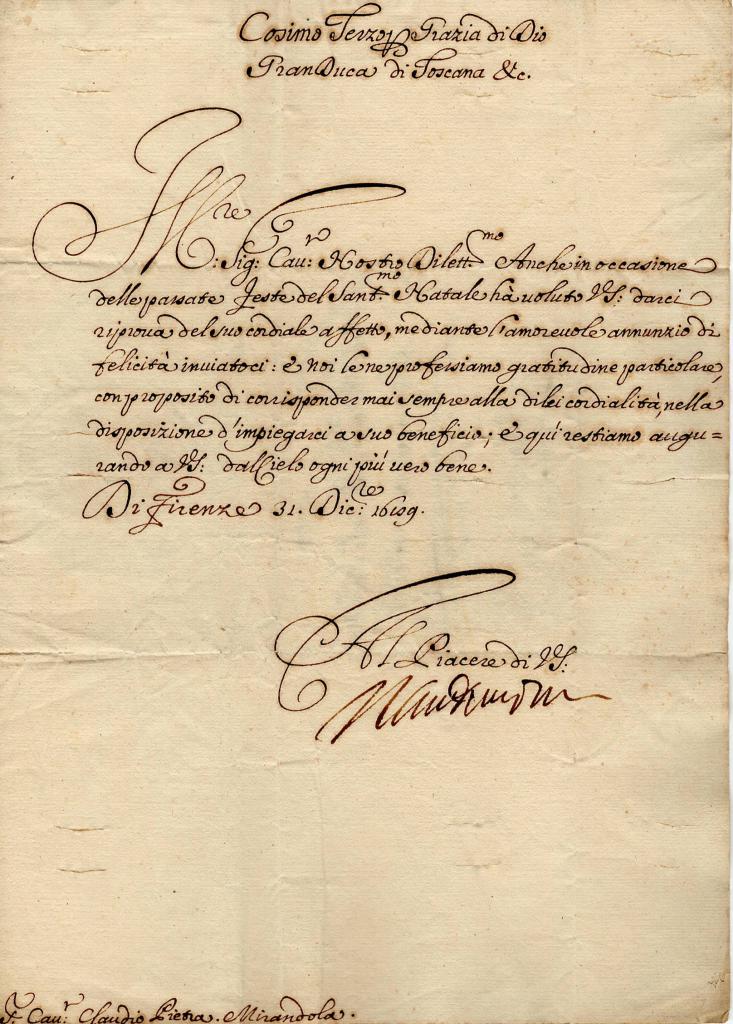 Cosimo Terzo p Grazia di Dio
GranDuca di Toscana &c.
Ill.re
Sig: Cau:r Nostro Dilett.mo Anche in occasione
delle passate Feste del Sant.mo Natale hà voluto VS: darci
riprova del suo cordiale affetto, mediante l'amorevole annunzio di
felicità inviatoci: e noi le ne professiamo gratitudine particolare,
con proposito di corrisponder mai sempre alla di lei cordialità, nella
disposizione d'impiegarci a suo beneficio; e qui restiamo augu=
rando a VS: dal Cielo ogni più vero bene.
Di Firenze 31. Dic:re
Al Piacere di VS:
Cau:r Claudio Pietra. Mirandola.